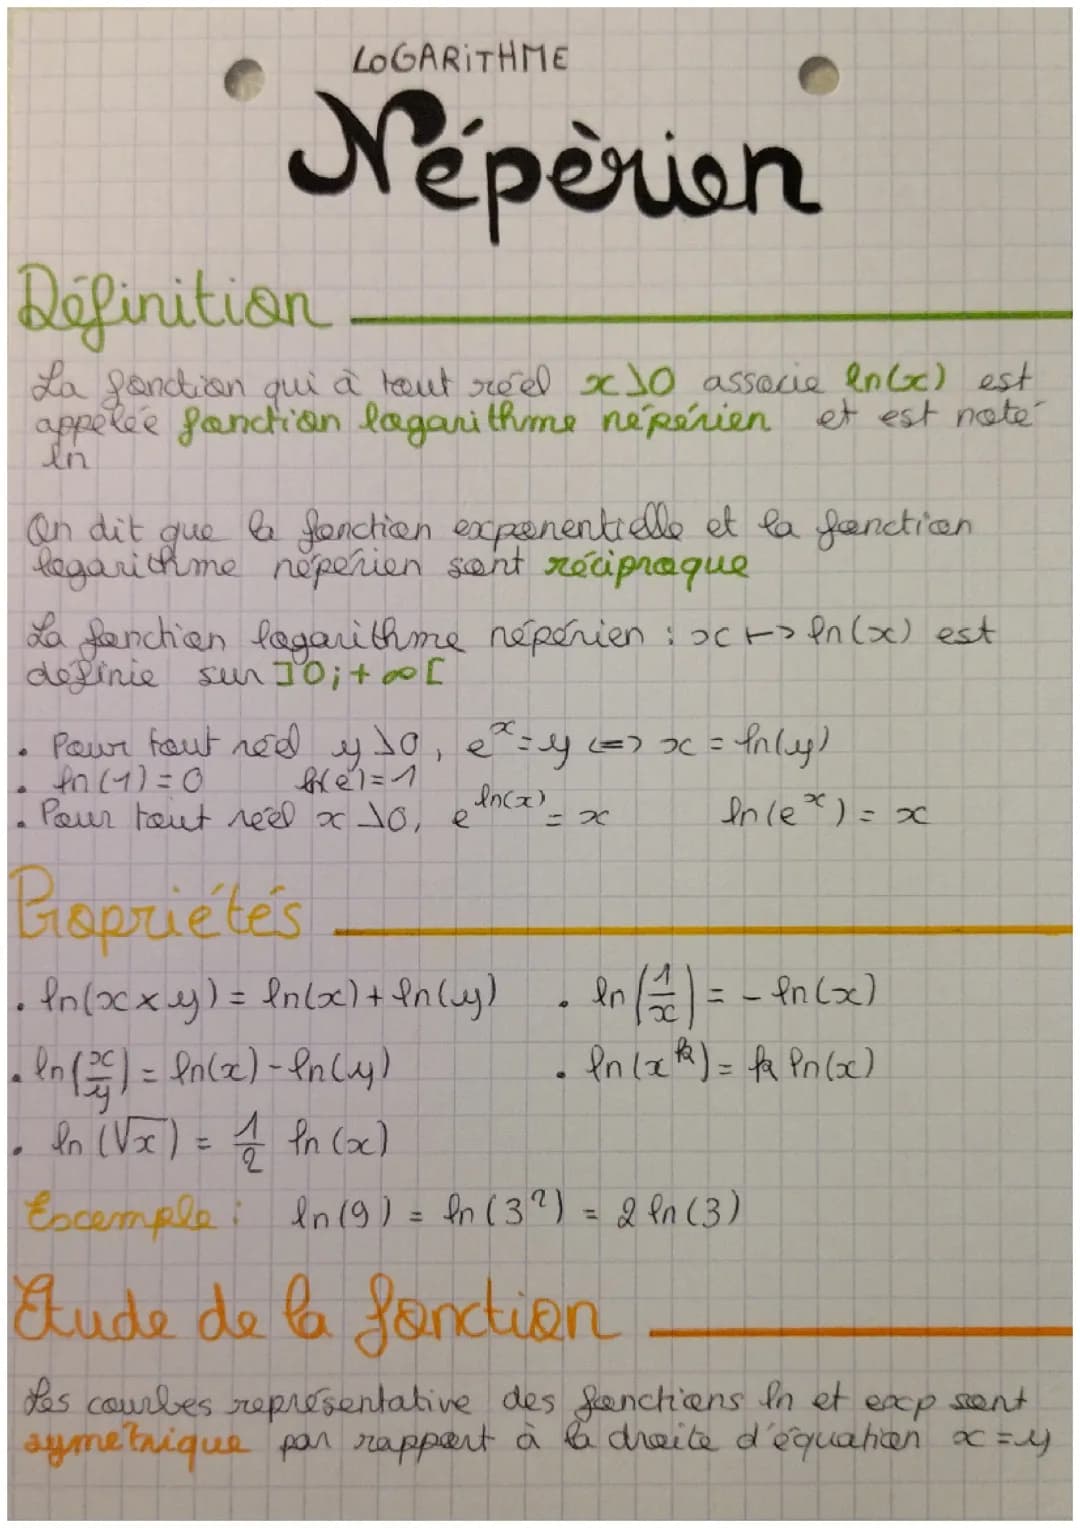 LOGARITHME
Népèrien
Définition
La fonction qui à tout réel x>0 associe ln(x) est
appelée fonction logarithme népérien et est noté
ln
On dit que la fonction exponentielle et la fonction
logarithme népérien sont réciproque
La fonction logarithme népérien : x ↦ ln(x) est
definie sur ]0;+∞[
• Pour tout réel y>0, eˣ=y <=> x = ln(y)
• ln(1)=0 ln(e)=1
• Pour tout réel x>0, e^ln(x) = x ln(eˣ) = x
Propriétés
• ln(x×y) = ln(x)+ln(y) • ln(1/x) = -ln(x)
• ln(x/y) = ln(x)-ln(y) • ln(x^k) = k ln(x)
• ln(√x) = 1/2 ln(x)
Excemple : ln(9) = ln(3²) = 2 ln(3)
Etude de la fonction
Les courbes représentative des fonctions ln et exp sont
symetrique par rapport à la droite d'équation x=y